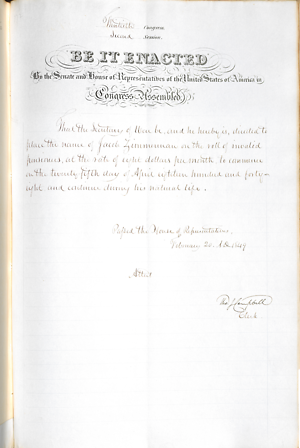 Thirtieth Congress
Second Session
BE IT ENACTED
By the Senate and House of Representatives of the United States of America in
Congress Assembled
That the Secretary of War be, and he hereby is, directed to
place the name of Jacob Zimmerman on the roll of invalid
pensioners, at the rate of eight dollars per month to commence
on the twenty fifth day of April eighteen hundred and forty-
eight and continue during his natural life.
Passed the House of Representatives,
February 20, A.D. 1849
Attest
Tho J Campbell
Clerk